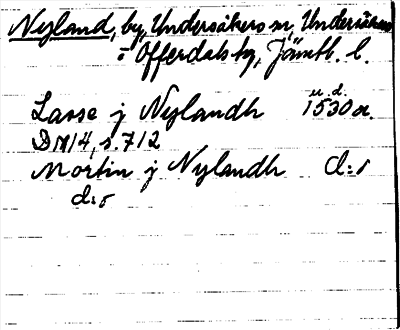 Nyland, by, Undersåkers sn, Undersåkers
o Offerdals tg, Jämtl. l.
u. d.
Lasse j Nylandh 1530 a.
DN14, s. 712
Mortin j Nylandh d:o
d:o